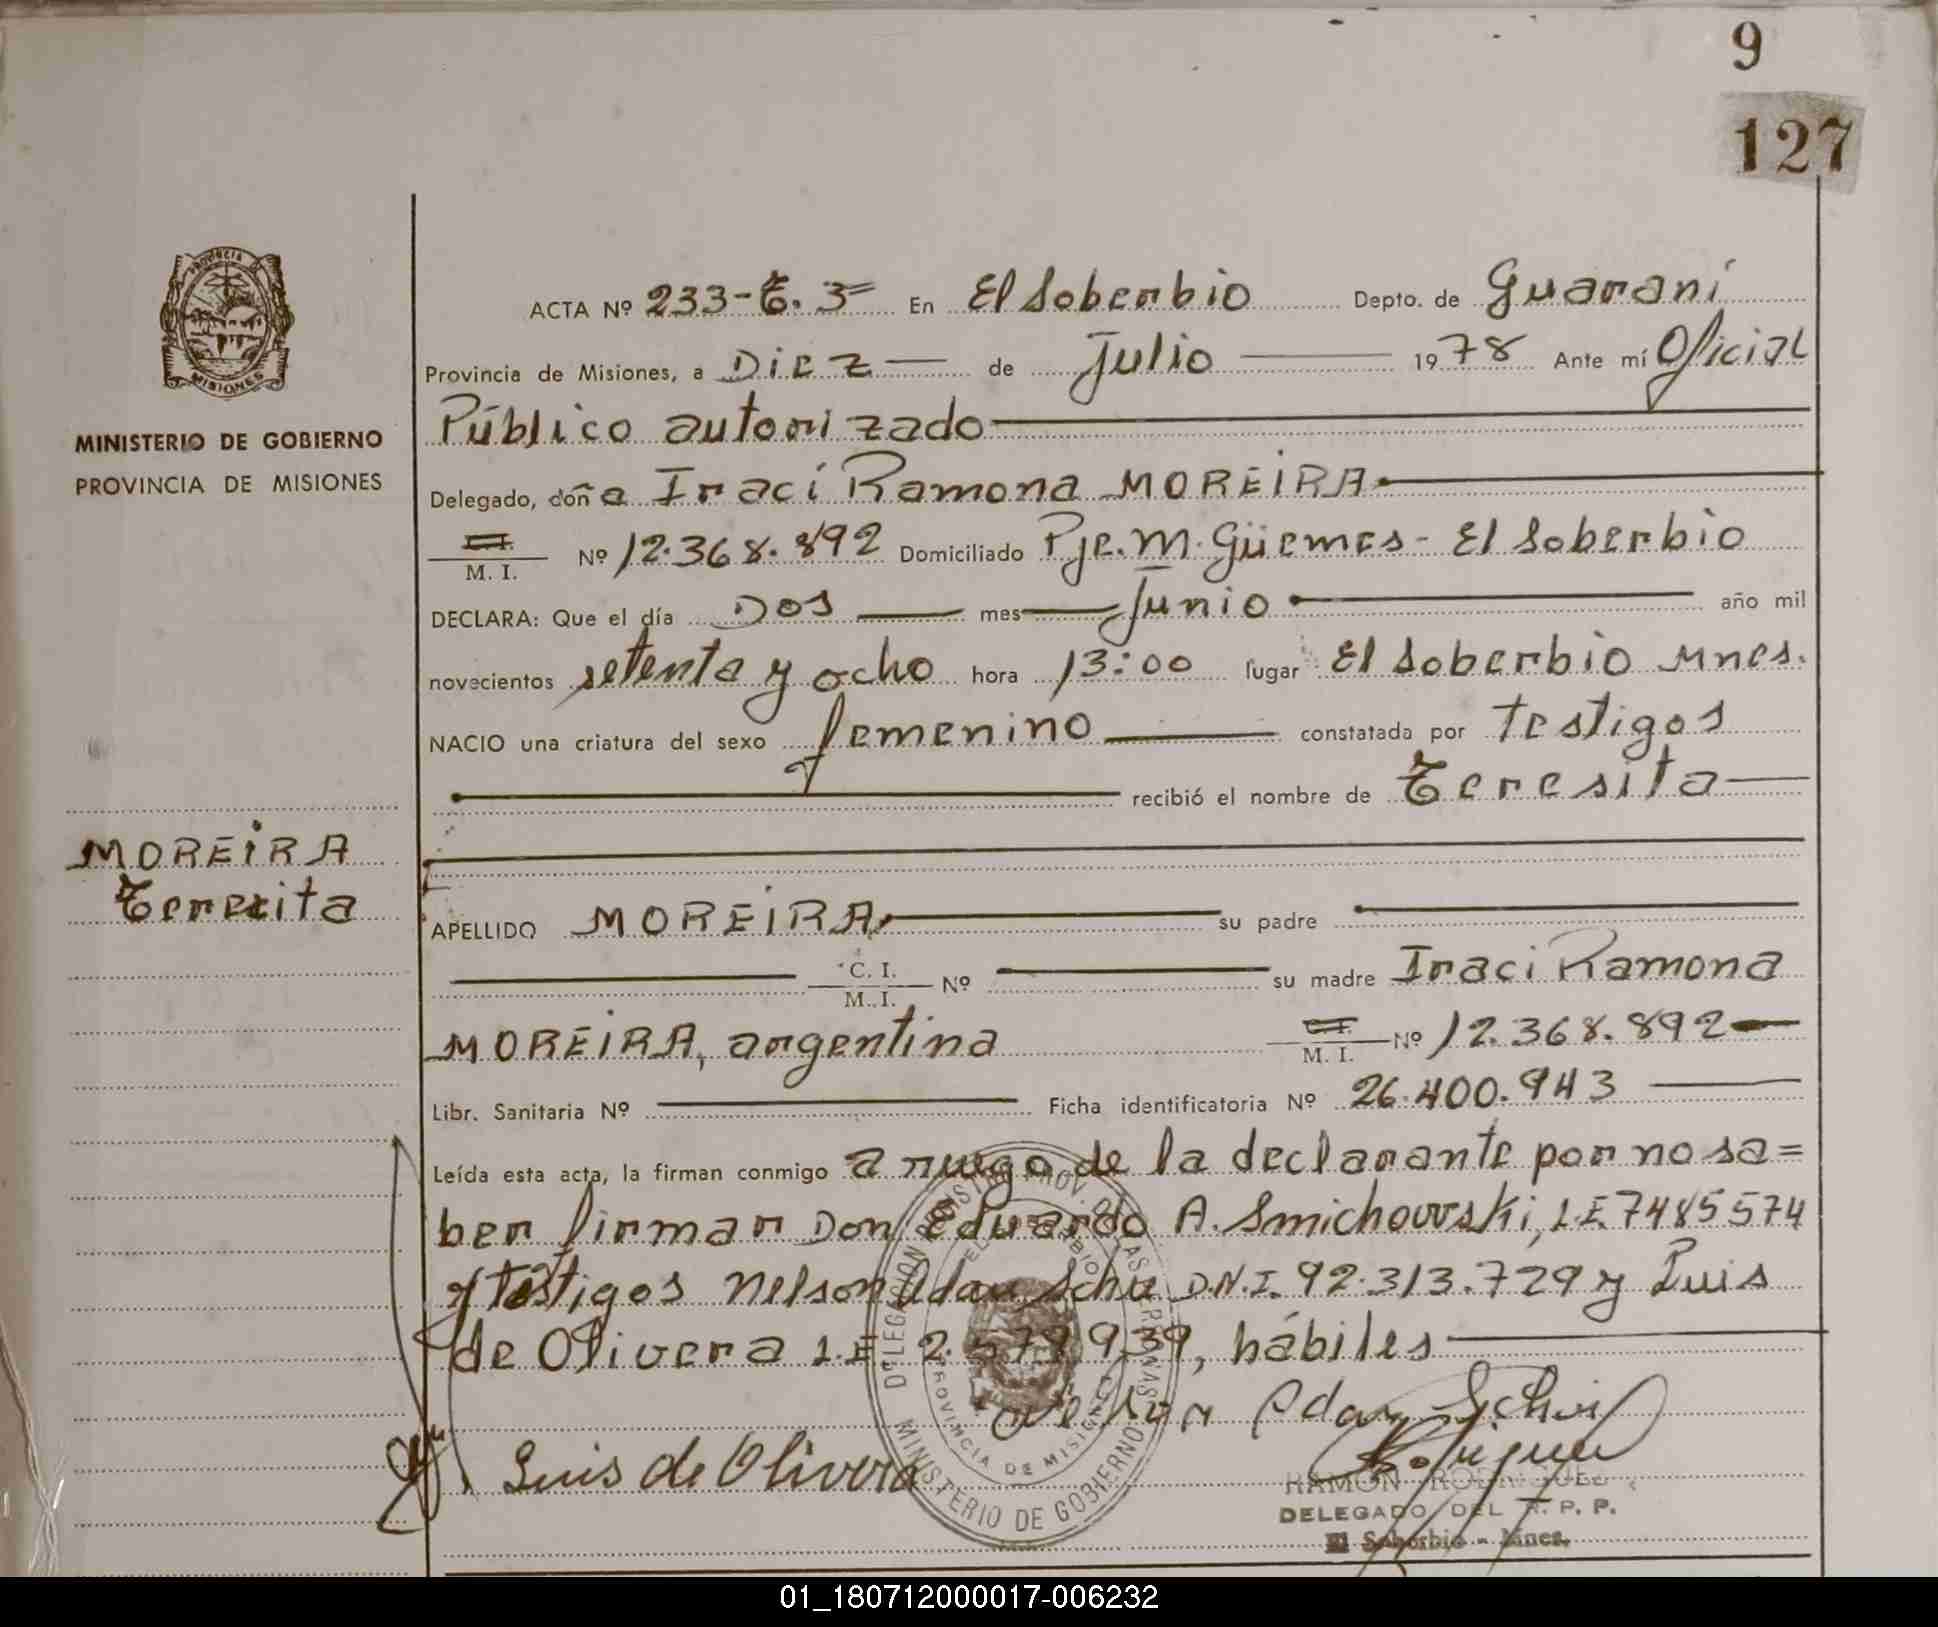 9
127
PROVINCIA DE
MISIONES
MINISTERIO DE GOBIERNO
PROVINCIA DE MISIONES
ACTA Nº 233-T. 3= En El Soberbio Depto. de Guaraní
Provincia de Misiones, a Diez de Julio 1978 Ante mí Oficial
Público autorizado
Delegado, doña Iraci Ramona MOREIRA
C. I. / M. I. Nº 12.368.892 Domiciliado Pje. M. Güemes - El Soberbio
DECLARA: Que el día Dos mes Junio año mil
novecientos setenta y ocho hora 13:00 lugar El Soberbio Mnes.
NACIO una criatura del sexo femenino constatada por testigos
recibió el nombre de Teresita
MOREIRA
Teresita
APELLIDO MOREIRA su padre
C. I. / M. I. Nº su madre Iraci Ramona
MOREIRA, argentina C. I. / M. I. Nº 12.368.892
Libr. Sanitaria Nº Ficha identificatoria Nº 26.400.943
Leída esta acta, la firman conmigo a ruego de la declarante por no sa=
ber firmar Don Eduardo A. Smichowski, L.E. 7485574
y testigos Nelson Adan Schu D.N.I. 92.313.729 y Luis
de Olivera L.E 2.579939, hábiles
Nelson Adan Schu
Luis de Olivera
RAMON RODRIGUEZ
DELEGADO DEL R. P. P.
El Soberbio - Mnes.
DELEGACION REGISTRO PROV. DE LAS PERSONAS
EL SOBERBIO
PROVINCIA DE MISIONES
MINISTERIO DE GOBIERNO
01_180712000017-006232